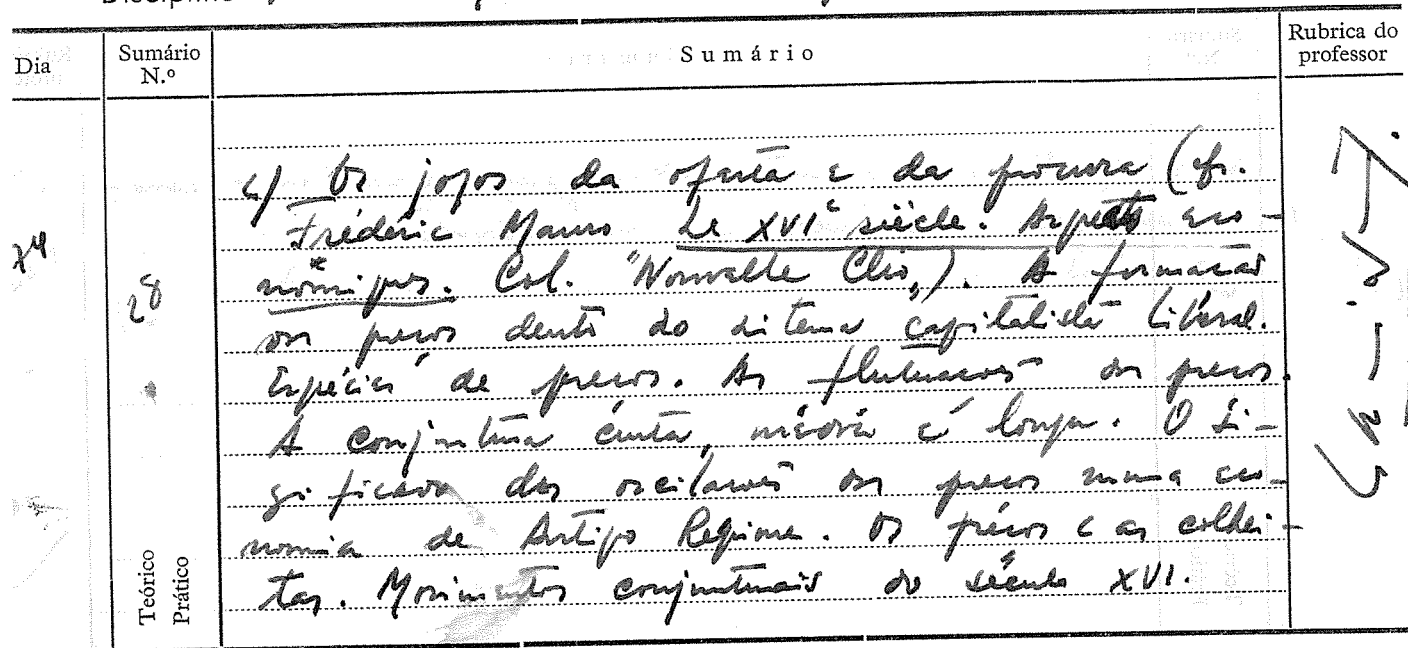 Dia
Sumário N.º
Sumário
Rubrica do professor
24
28
c) Os jogos da oferta e da procura (cfr.
Frédéric Mauro Le XVIe siècle. Aspects eco-
nomiques. Col. "Nouvelle Clio"). A formação
dos preços dentro do sistema capitalista liberal.
Espécies de preços. As flutuações dos preços.
A conjuntura curta, média e longa. O si-
gnificado das oscilações dos preços numa eco-
nomia de Antigo Regime. Os preços e as colhei-
tas. Movimentos conjunturais do século XVI.
Teórico
Prático